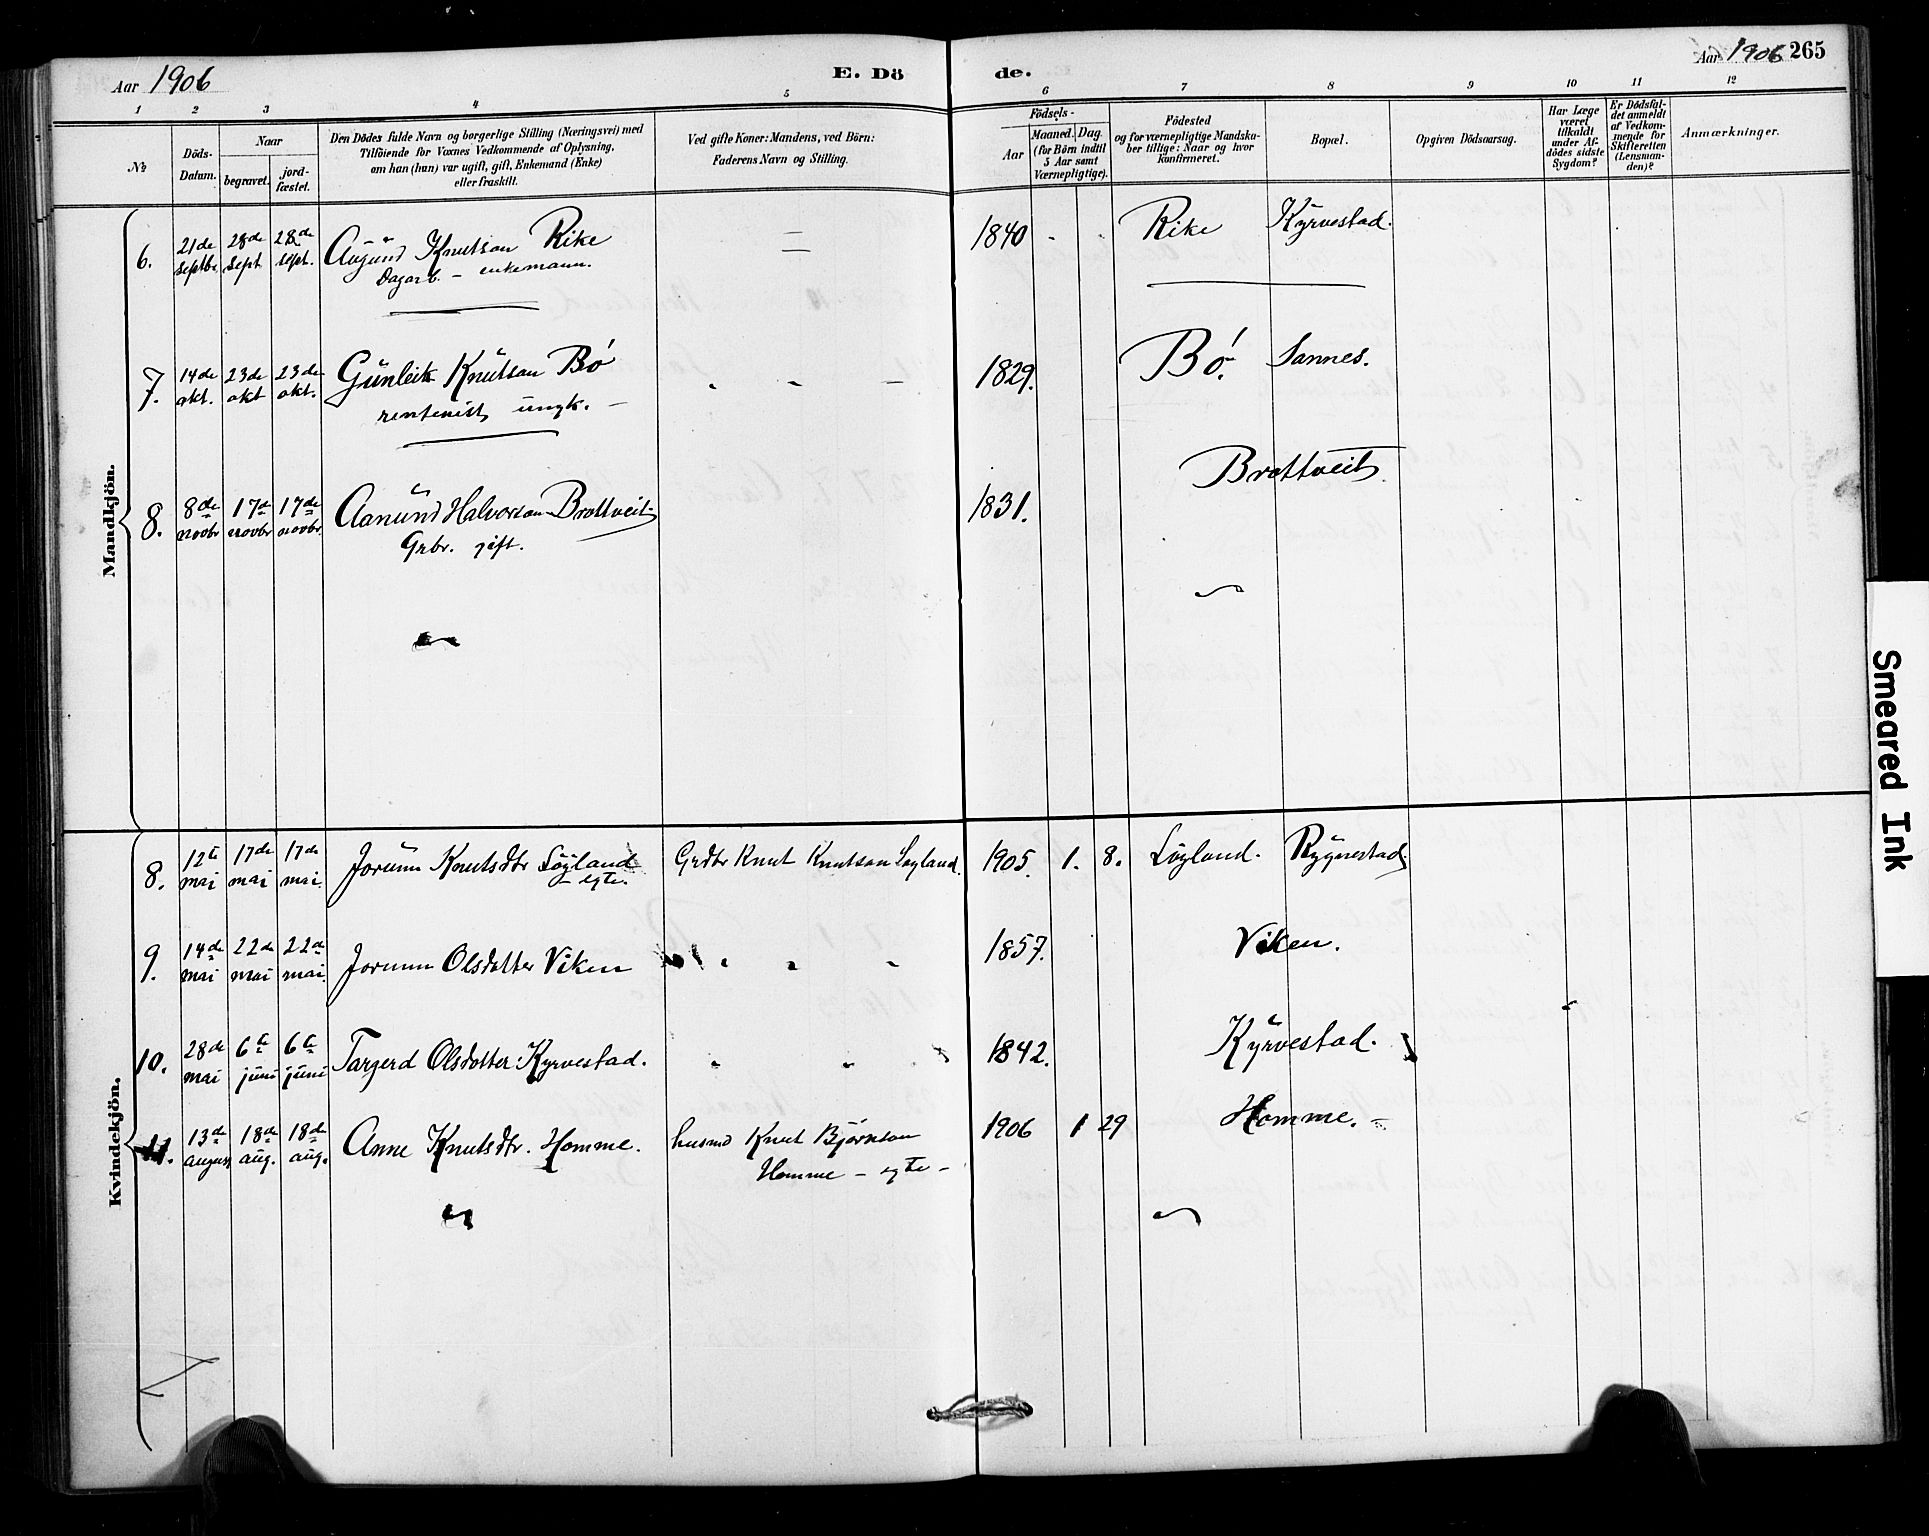 Aar 1906
E. Dö
de.
Aar 1906 265
1 2 3 4 5 6 7 8 9 10 11 12
No
Döds-
Datum.
Naar
begravet.
jord-
fæstet.
Den Dödes fulde Navn og borgerlige Stilling (Næringsvei) med
Tilföiende for Voxnes Vedkommende af Oplysning,
om han (hun) var ugift, gift, Enkemand (Enke)
eller fraskilt.
Ved gifte Koner: Mandens, ved Börn:
Faderens Navn og Stilling.
Födsels-
Aar
Maaned. Dag
(for Börn indtil
5 Aar samt
Værnepligtige).
Födested
og for værnepligtige Mandska-
ber tillige: Naar og hvor
konfirmeret.
Bopæl.
Opgiven Dödsaarsag.
Har Læge
været
tilkaldt
under Af-
dödes sidste
Sygdom?
Er Dödsfal-
det anmeldt
af Vedkom-
mende for
Skifteretten
(Lensman-
den)?
Anmærkninger.
Mandkjön.
6. 21de septbr. 28de sept 28de sept. Augund Knutson Rike
Dagarb. – enkemann.
1840 Rike Kyrvestad.
7. 14de okt. 23de okt 23de okt. Gunleik Knutson Bø
rentenist ungk. –
1829. Bø. Sannes.
8. 8de novbr 17de novbr 17de novbr. Aanund Halvorson Brottveit
Grbr. gift.
1831. Brottveit.
Kvindekjön.
8. 12te mai 17de mai 17de mai. Jorunn Knutsdtr Løyland
– egte.
Grdbr Knut Knutson Løyland. 1905. 1. 8. Løyland. Rygnestad.
9. 14de mai 22de mai 22de mai. Jorunn Olsdotter Viken 1857. Viken.
10. 28de mai 6te juni 6te juni Targerd Olsdotter Kyrvestad. 1842. Kyrvestad.
11. 13de august 18de aug. 18de aug. Anne Knutsdtr. Homme. husmd Knut Bjørnson
Homme – egte –
1906 1 29 Homme. –
Smeared Ink